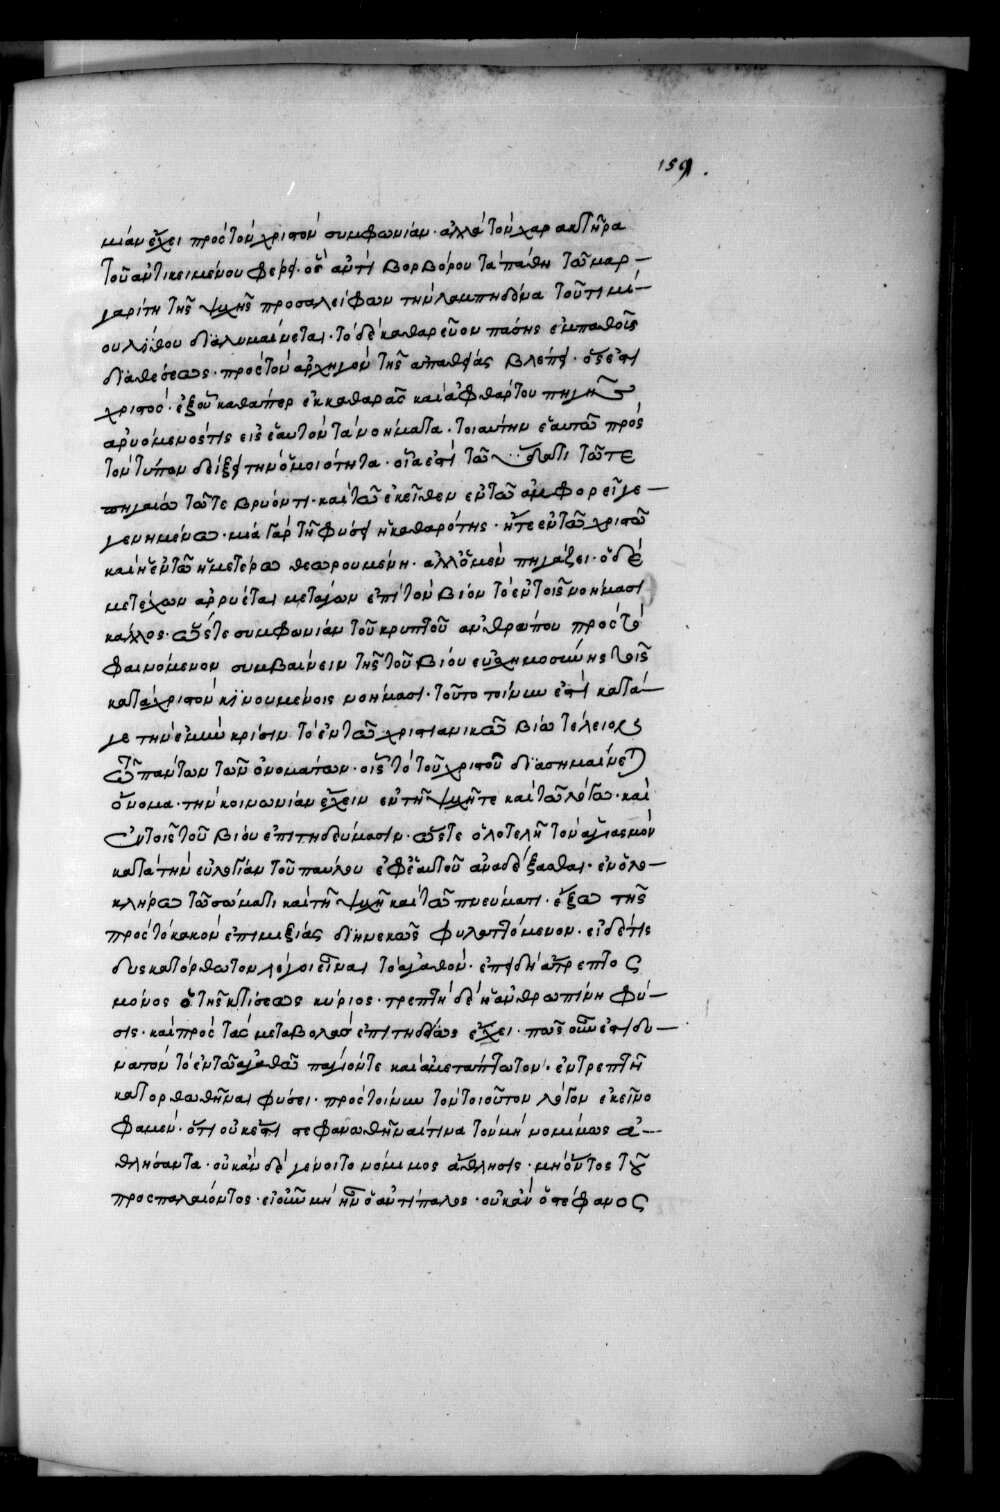 159.
μίαν ἔχει πρὸς τὸν χριστὸν συμφωνίαν· ἀλλὰ τὸν χαρακτῆρα
τοῦ ἀντικειμένου φέρει· ὃς ἀντὶ βορβόρου τὰ πάθη τῶ μαρ—
γαρίτη τῆς ψυχῆς προσαλείφων τὴν λαμπηδόνα τοῦ τιμί—
ου λίθου διαλυμαίνεται· τὸ δὲ καθαρεῦον πάσης ἐμπαθοῦς
διαθέσεως· πρὸς τὸν ἀρχηγὸν τῆς ἀπαθείας βλέπει· ὅς ἐστι
χριστός· ἐξ οὗ καθάπερ ἐκ καθαρᾶς καὶ ἀφθάρτου πηγῆς
ἀρυόμενός τις εἰς ἑαυτὸν τὰ νοήματα· τοιαύτην ἑαυτῶ πρὸς
τὸν τύπον δείξει τὴν ὁμοιότητα· οἵα ἐστὶ τῶ ὕδατι τῶ τε
πηγαίω τῶ τε βρύοντι· καὶ τῶ ἐκεῖθεν ἐν τῶ ἀμφορεῖ γε—
γενημένω· μία γὰρ τῆ φύσει ἡ καθαρότης· ἥ τε ἐν τῶ χριστῶ
καὶ ἡ ἐν τῶ ἡμετέρω θεωρουμένη· ἀλλ' ὁ μὲν πηγάζει· ὁ δὲ
μετέχων ἀρρυέται μετάγων ἐπὶ τὸν βίον τὸ ἐν τοῖς νοήμασι
κάλλος· ὥστε συμφωνίαν τοῦ κρυπτοῦ ἀνθρώπου πρὸς τὸ
φαινόμενον συμβαίνειν τῆς τοῦ βίου εὐσχημοσύνης τοῖς
κατὰ χριστὸν κινουμένοις νοήμασι· τοῦτο τοίνυν ἐστὶ κατά—
γε τὴν ἐμὴν κρίσιν τὸ ἐν τῶ χριστιανικῶ βίω τέλειος
τῶ πάντων τῶν ὀνομάτων· οἷς τὸ τοῦ χριστοῦ διασημαίνεται
ὄνομα· τὴν κοινωνίαν ἔχειν ἐν τῆ ψυχῆ τε καὶ τῶ λόγω· καὶ
ἐν τοῖς τοῦ βίου ἐπιτηδεύμασιν· ὥστε ὁλοτελῆ τὸν ἁγιασμὸν
κατὰ τὴν εὐλογίαν τοῦ παύλου ἐφ' ἑαυτοῦ ἀναδέξασθαι· ἐν ὁλο—
κλήρω τῶ σώματι καὶ τῆ ψυχῆ καὶ τῶ πνεύματι· ἔξω τῆς
πρὸς τὸ κακὸν ἐπιμιξίας διηνεκῶς φυλαττόμενον· εἰ δέ τις
δυσκατόρθωτον λέγοι εἶναι τὸ ἀγαθόν· ἐπειδὴ ἄτρεπτος
μόνος ὁ τῆς κτίσεως κύριος· τρεπτὴ δὲ ἡ ἀνθρωπίνη φύ—
σις· καὶ πρὸς τὰς μεταβολὰς ἐπιτηδείως ἔχει· πῶς οὖν ἐστι δυ—
νατὸν τὸ ἐν τῶ ἀγαθῶ πάγιόν τε καὶ ἀμετάπτωτον· ἐν τρεπτῆ
κατορθωθῆναι φύσει· πρὸς τοίνυν τὸν τοιοῦτον λόγον ἐκεῖνο
φαμέν· ὅτι οὐκ ἔστι στεφανωθῆναί τινα τὸν μὴ νομίμως ἀ—
θλήσαντα· οὐκ ἂν δὲ γένοιτο νόμιμος ἄθλησις· μὴ ὄντος τοῦ
προσπαλαίοντος· εἰ οὖν μὴ ἦν ὁ ἀντίπαλος· οὐκ ἂν ὁ στέφανος